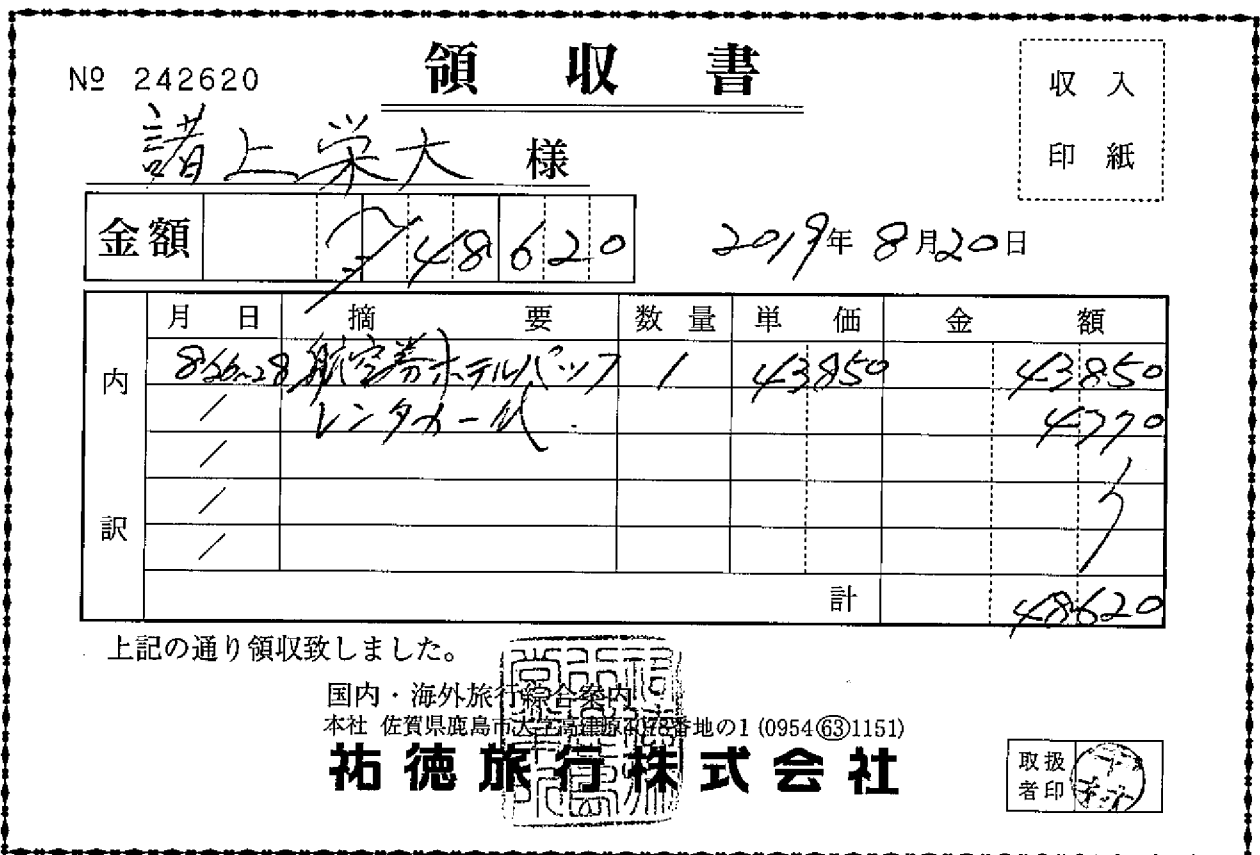 № 242620
領収書
収入
印紙
諸上栄大 様
金額 ¥48620
2019年8月20日
内訳
月日 摘要 数量 単価 金額
8/26~28 航空券ホテルパック 1 43850 43850
/ レンタカー代 4770
/
/
/
計 48620
上記の通り領収致しました。
国内・海外旅行綜合案内
本社 佐賀県鹿島市大字高津原4078番地の1 (0954㊿1151)
祐徳旅行株式会社
取扱者印